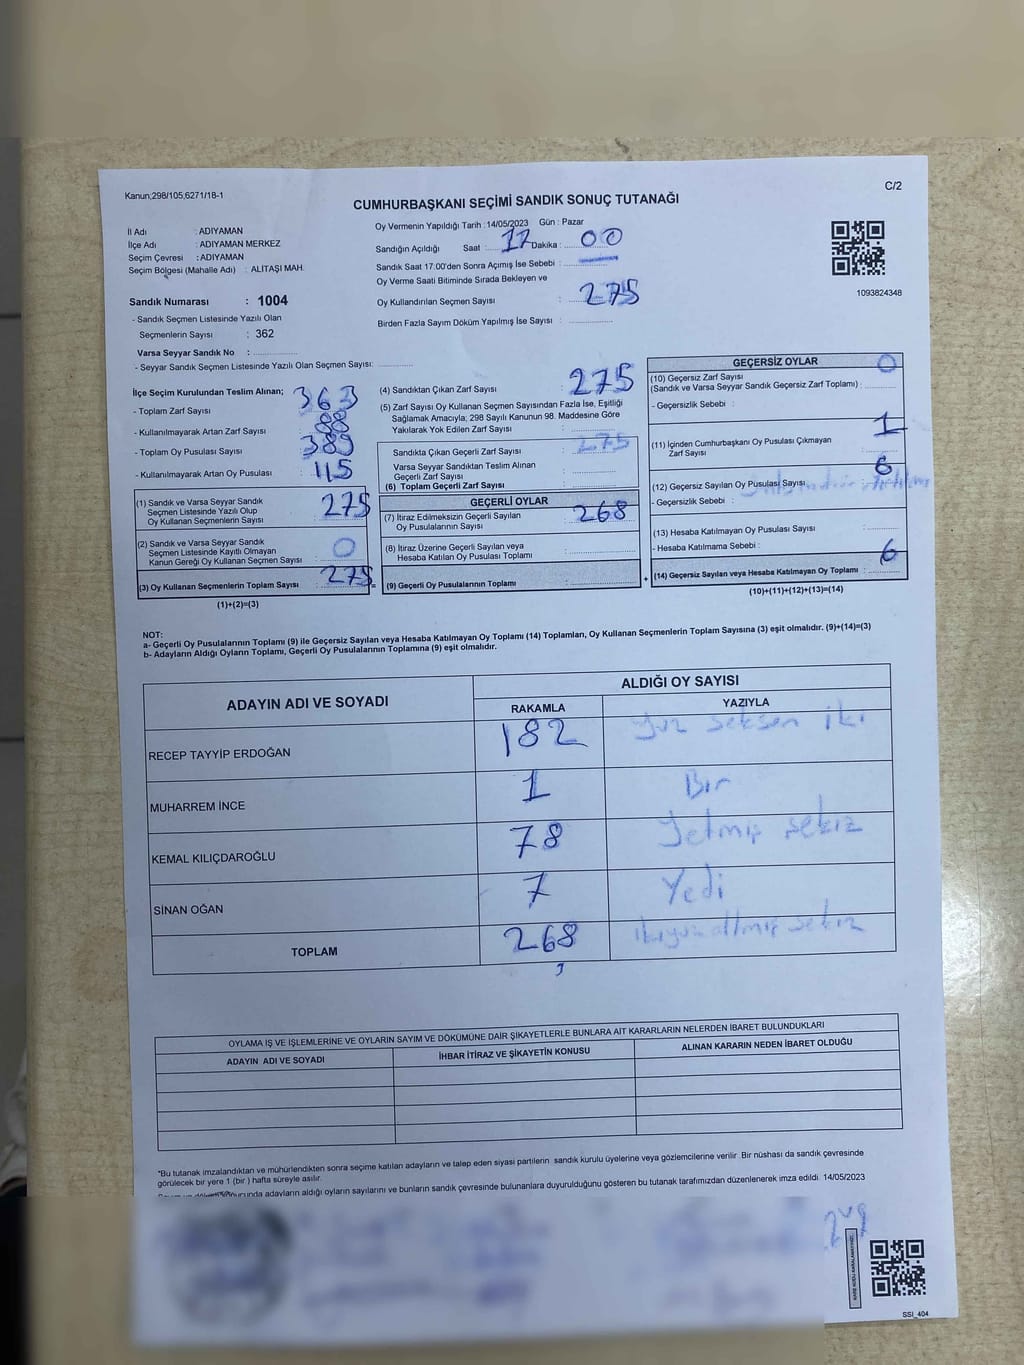 Kanun;298/105,6271/18-1
C/2
CUMHURBAŞKANI SEÇİMİ SANDIK SONUÇ TUTANAĞI
İl Adı : ADIYAMAN
İlçe Adı : ADIYAMAN MERKEZ
Seçim Çevresi : ADIYAMAN
Seçim Bölgesi (Mahalle Adı) : ALITAŞI MAH.
Sandık Numarası : 1004
- Sandık Seçmen Listesinde Yazılı Olan
Seçmenlerin Sayısı : 362
Varsa Seyyar Sandık No :
- Seyyar Sandık Seçmen Listesinde Yazılı Olan Seçmen Sayısı:
Oy Vermenin Yapıldığı Tarih :14/05/2023 Gün : Pazar
Sandığın Açıldığı Saat : 17 Dakika : 00
Sandık Saat 17:00'den Sonra Açımış İse Sebebi :
Oy Verme Saati Bitiminde Sırada Bekleyen ve
Oy Kullandırılan Seçmen Sayısı : 275
Birden Fazla Sayım Döküm Yapılmış İse Sayısı :
1093824348
İlçe Seçim Kurulundan Teslim Alınan; 363
- Toplam Zarf Sayısı
- Kullanılmayarak Artan Zarf Sayısı : 88
- Toplam Oy Pusulası Sayısı : 389
- Kullanılmayarak Artan Oy Pusulası : 115
(1) Sandık ve Varsa Seyyar Sandık
Seçmen Listesinde Yazılı Olup
Oy Kullanan Seçmenlerin Sayısı : 275
(2) Sandık ve Varsa Seyyar Sandık
Seçmen Listesinde Kayıtlı Olmayan
Kanun Gereği Oy Kullanan Seçmen Sayısı : 0
(3) Oy Kullanan Seçmenlerin Toplam Sayısı : 275
(1)+(2)=(3)
(4) Sandıktan Çıkan Zarf Sayısı : 275
(5) Zarf Sayısı Oy Kullanan Seçmen Sayısından Fazla İse, Eşitliği
Sağlamak Amacıyla; 298 Sayılı Kanunun 98. Maddesine Göre
Yakılarak Yok Edilen Zarf Sayısı :
Sandıkta Çıkan Geçerli Zarf Sayısı : 275
Varsa Seyyar Sandıktan Teslim Alınan
Geçerli Zarf Sayısı :
(6) Toplam Geçerli Zarf Sayısı :
GEÇERLİ OYLAR
(7) İtiraz Edilmeksizin Geçerli Sayılan
Oy Pusulalarının Sayısı : 268
(8) İtiraz Üzerine Geçerli Sayılan veya
Hesaba Katılan Oy Pusulası Toplamı :
(9) Geçerli Oy Pusulalarının Toplamı :
GEÇERSİZ OYLAR
(10) Geçersiz Zarf Sayısı 0
(Sandık ve Varsa Seyyar Sandık Geçersiz Zarf Toplamı) :
- Geçersizlik Sebebi :
(11) İçinden Cumhurbaşkanı Oy Pusulası Çıkmayan 1
Zarf Sayısı :
(12) Geçersiz Sayılan Oy Pusulası Sayısı : 6
- Geçersizlik Sebebi :
(13) Hesaba Katılmayan Oy Pusulası Sayısı :
- Hesaba Katılmama Sebebi :
(14) Geçersiz Sayılan veya Hesaba Katılmayan Oy Toplamı : 6
(10)+(11)+(12)+(13)=(14)
NOT:
a- Geçerli Oy Pusulalarının Toplamı (9) ile Geçersiz Sayılan veya Hesaba Katılmayan Oy Toplamı (14) Toplamları, Oy Kullanan Seçmenlerin Toplam Sayısına (3) eşit olmalıdır. (9)+(14)=(3)
b- Adayların Aldığı Oyların Toplamı, Geçerli Oy Pusulalarının Toplamına (9) eşit olmalıdır.
ADAYIN ADI VE SOYADI ALDIĞI OY SAYISI
RAKAMLA YAZIYLA
RECEP TAYYİP ERDOĞAN 182 Yüz seksen iki
MUHARREM İNCE 1 Bir
KEMAL KILIÇDAROĞLU 78 Yetmiş sekiz
SİNAN OĞAN 7 Yedi
TOPLAM 268 ikiyüz altmış sekiz
OYLAMA İŞ VE İŞLEMLERİNE VE OYLARIN SAYIM VE DÖKÜMÜNE DAİR ŞİKAYETLERLE BUNLARA AİT KARARLARIN NELERDEN İBARET BULUNDUKLARI
ADAYIN ADI VE SOYADI İHBAR İTİRAZ VE ŞİKAYETİN KONUSU ALINAN KARARIN NEDEN İBARET OLDUĞU
*Bu tutanak imzalandıktan ve mühürlendikten sonra seçime katılan adayların ve talep eden siyasi partilerin sandık kurulu üyelerine veya gözlemcilerine verilir. Bir nüshası da sandık çevresinde
görülecek bir yere 1 (bir ) hafta süreyle asılır.
adayların aldığı oyların sayılarını ve bunların sandık çevresinde bulunanlara duyurulduğunu gösteren bu tutanak tarafımızdan düzenlenerek imza edildi. 14/05/2023
SSI_404